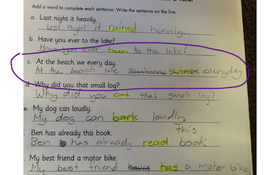 Add a word to complete each sentence. Write the sentence on the line.
a. Last night it heavily.
Last night it rained heavily.
b. Have you ever to the lake?
Have you ever been to the lake?
c. At the beach we every day.
At the beach we swimmer everyday
d. Why did you that small log?
Why did you cut that small log?
e. My dog can loudly.
My dog can bark loudly
this
Ben has already this book.
Ben has already read book
My best friend a motor bike.
My best friend has a motor bike